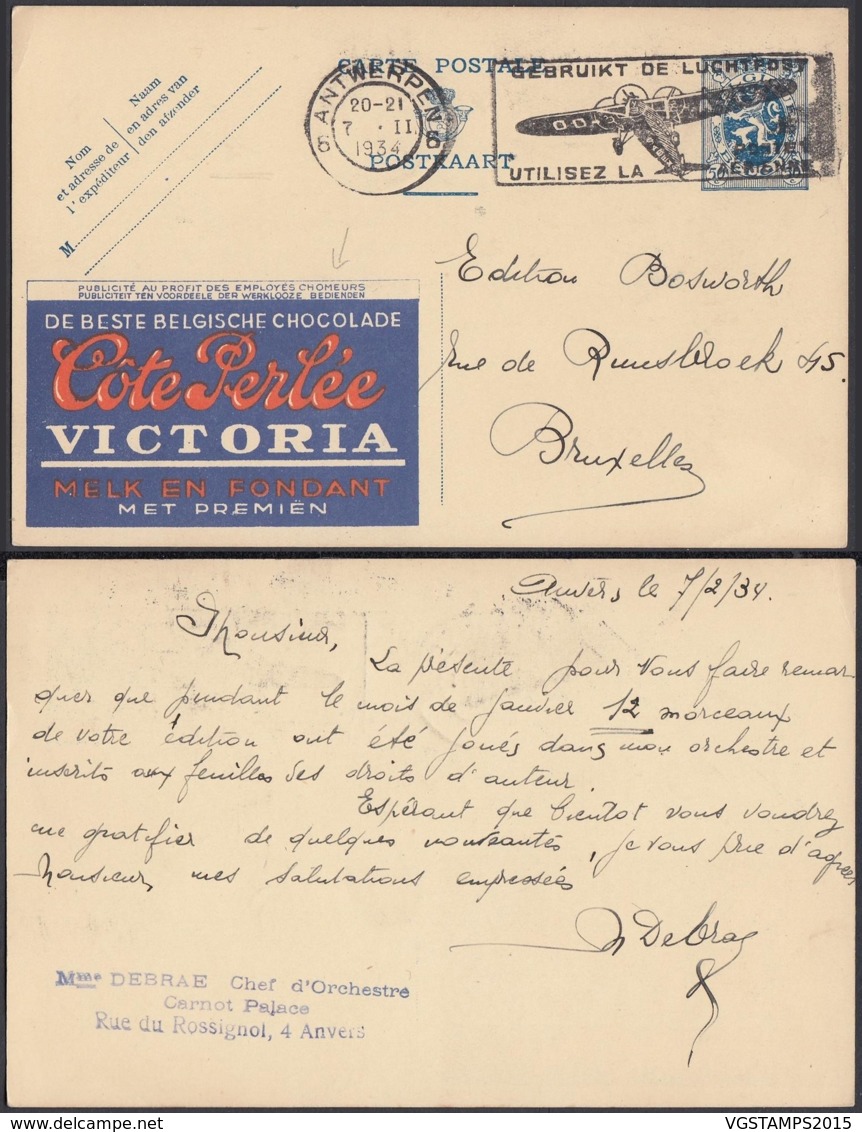 CARTE POSTALE
POSTKAART
Nom
et adresse de
l'expéditeur
Naam
en adres van
den afzender
M
ANTWERPEN
6 6
20-21
7 . II
1934
GEBRUIKT DE LUCHTPOST
UTILISEZ LA
POSTE
AERIENNE
PUBLICITÉ AU PROFIT DES EMPLOYÉS CHOMEURS
PUBLICITEIT TEN VOORDEELE DER WERKLOOZE BEDIENDEN
DE BESTE BELGISCHE CHOCOLADE
Côte Perlée
VICTORIA
MELK EN FONDANT
MET PREMIËN
Edition Bosworth
rue de Ruusbroek 45.
Bruxelles
Anvers le 7/2/34.
Monsieur,
La présente pour vous faire remar
quer que pendant le mois de janvier 12 morceaux
de votre édition ont été joués dans mon orchestre et
inscrits aux feuilles des droits d'auteur.
Espérant que bientot vous voudrez
me gratifier de quelques nouveautés, je vous prie d'agréer
Monsieur, mes salutations empressées
Debrae
Mme DEBRAE Chef d'Orchestre
Carnot Palace
Rue du Rossignol, 4 Anvers
VGSTAMPS2015